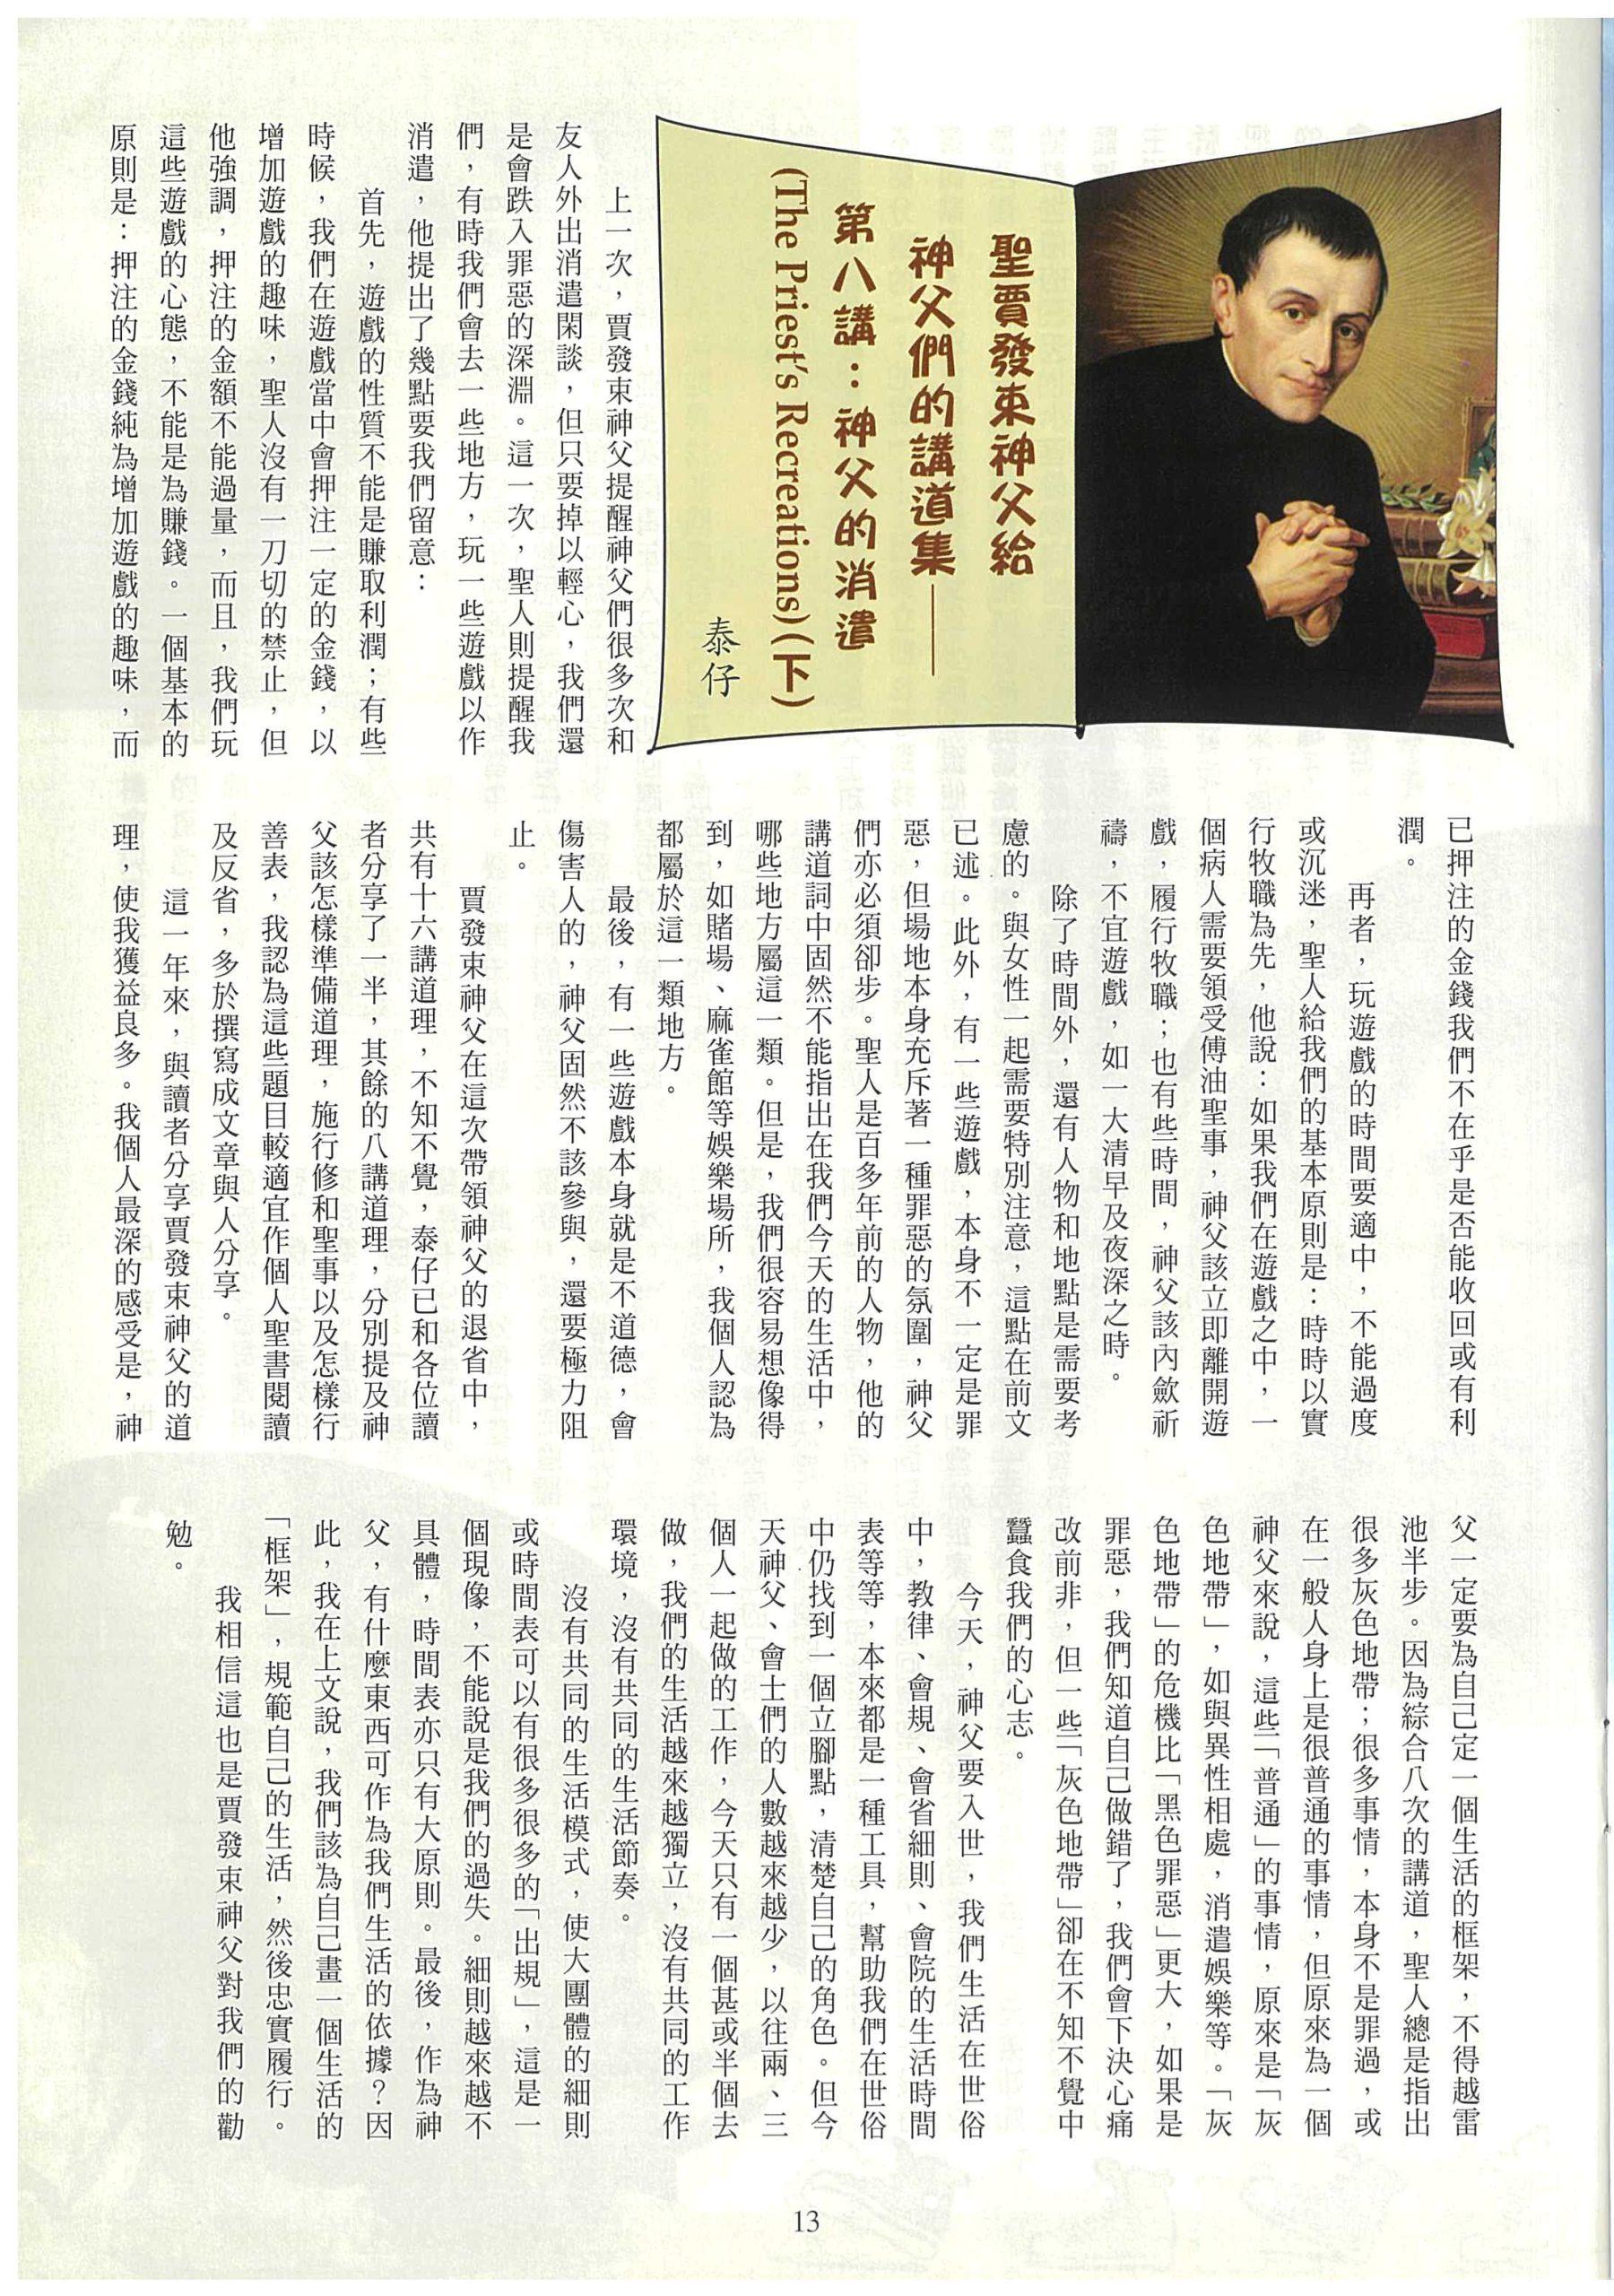 聖賈發束神父給
神父們的講道集——
第八講：神父的消遣
(The Priest's Recreations)(下)
泰仔
上一次，賈發束神父提醒神父們很多次和
友人外出消遣閑談，但只要掉以輕心，我們還
是會跌入罪惡的深淵。這一次，聖人則提醒我
們，有時我們會去一些地方，玩一些遊戲以作
消遣，他提出了幾點要我們留意：
首先，遊戲的性質不能是賺取利潤；有些
時候，我們在遊戲當中會押注一定的金錢，以
增加遊戲的趣味，聖人沒有一刀切的禁止，但
他強調，押注的金額不能過量，而且，我們玩
這些遊戲的心態，不能是為賺錢。一個基本的
原則是：押注的金錢純為增加遊戲的趣味，而
已押注的金錢我們不在乎是否能收回或有利
潤。
再者，玩遊戲的時間要適中，不能過度
或沉迷，聖人給我們的基本原則是：時時以實
行牧職為先，他說：如果我們在遊戲之中，一
個病人需要領受傅油聖事，神父該立即離開遊
戲，履行牧職；也有些時間，神父該內斂祈
禱，不宜遊戲，如一大清早及夜深之時。
除了時間外，還有人物和地點是需要考
慮的。與女性一起需要特別注意，這點在前文
已述。此外，有一些遊戲，本身不一定是罪
惡，但場地本身充斥著一種罪惡的氛圍，神父
們亦必須卻步。聖人是百多年前的人物，他的
講道詞中固然不能指出在我們今天的生活中，
哪些地方屬這一類。但是，我們很容易想像得
到，如賭場、麻雀館等娛樂場所，我個人認為
都屬於這一類地方。
最後，有一些遊戲本身就是不道德，會
傷害人的，神父固然不該參與，還要極力阻
止。
賈發束神父在這次帶領神父的退省中，
共有十六講道理，不知不覺，泰仔已和各位讀
者分享了一半，其餘的八講道理，分別提及神
父該怎樣準備道理，施行修和聖事以及怎樣行
善表，我認為這些題目較適宜作個人聖書閱讀
及反省，多於撰寫成文章與人分享。
這一年來，與讀者分享賈發束神父的道
理，使我獲益良多。我個人最深的感受是，神
父一定要為自己定一個生活的框架，不得越雷
池半步。因為綜合八次的講道，聖人總是指出
很多灰色地帶；很多事情，本身不是罪過，或
在一般人身上是很普通的事情，但原來為一個
神父來說，這些「普通」的事情，原來是「灰
色地帶」，如與異性相處，消遣娛樂等。「灰
色地帶」的危機比「黑色罪惡」更大，如果是
罪惡，我們知道自己做錯了，我們會下決心痛
改前非，但一些「灰色地帶」卻在不知不覺中
蠶食我們的心志。
今天，神父要入世，我們生活在世俗
中，教律、會規、會省細則、會院的生活時間
表等等，本來都是一種工具，幫助我們在世俗
中仍找到一個立腳點，清楚自己的角色。但今
天神父、會士們的人數越來越少，以往兩、三
個人一起做的工作，今天只有一個甚或半個去
做，我們的生活越來越獨立，沒有共同的工作
環境，沒有共同的生活節奏。
沒有共同的生活模式，使大團體的細則
或時間表可以有很多很多的「出規」，這是一
個現像，不能說是我們的過失。細則越來越不
具體，時間表亦只有大原則。最後，作為神
父，有什麼東西可作為我們生活的依據？因
此，我在上文說，我們該為自己畫一個生活的
「框架」，規範自己的生活，然後忠實履行。
我相信這也是賈發束神父對我們的勸
勉。
13